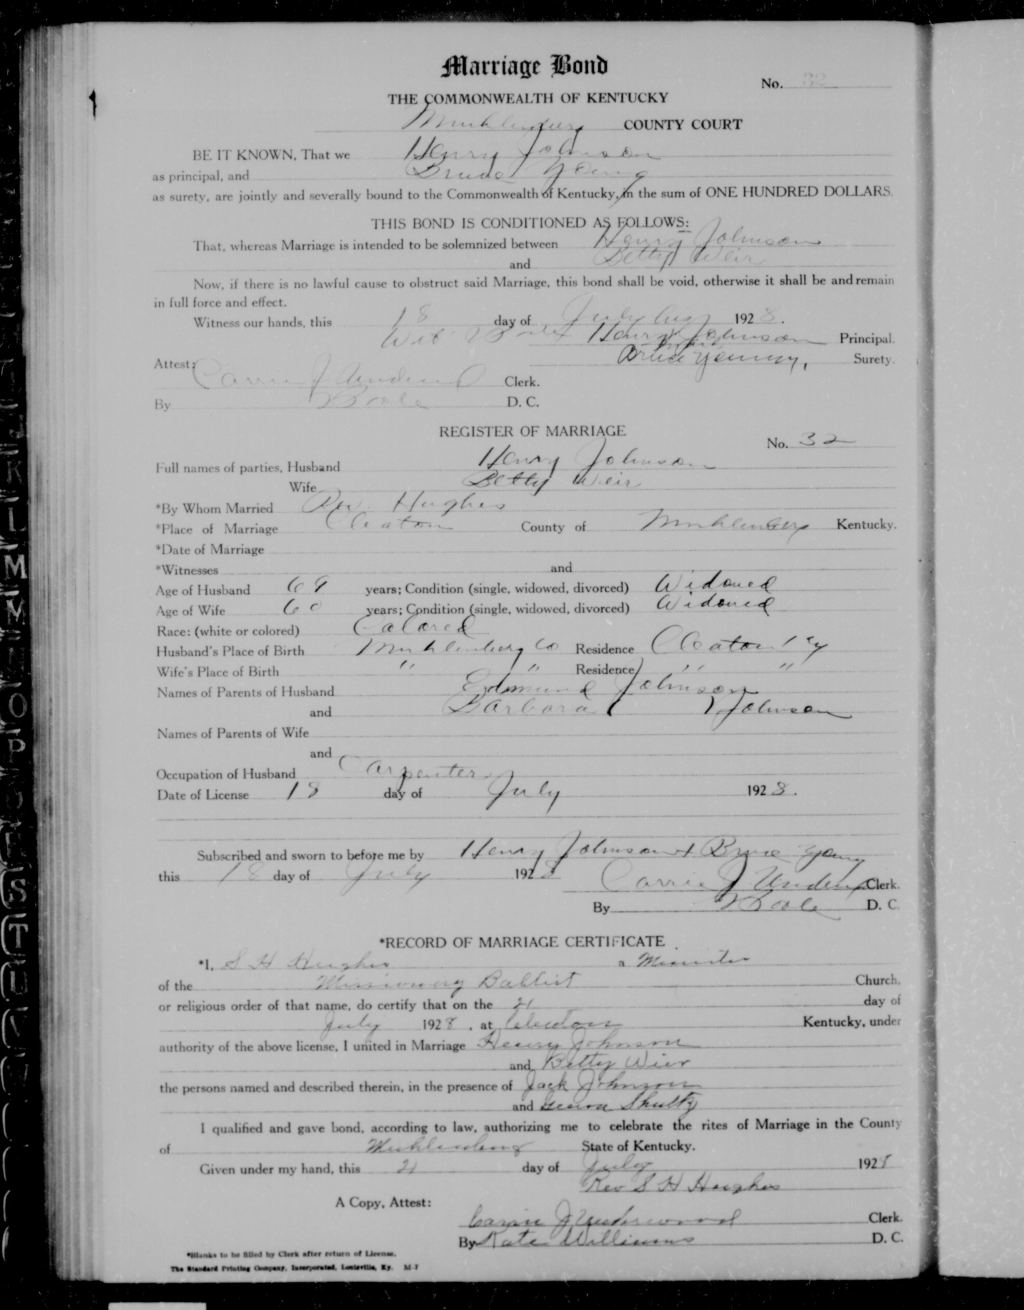 Marriage Bond
No. 32
THE COMMONWEALTH OF KENTUCKY
Muhlenberg COUNTY COURT
BE IT KNOWN, That we Henry Johnson
as principal, and Bruce Young
as surety, are jointly and severally bound to the Commonwealth of Kentucky, in the sum of ONE HUNDRED DOLLARS.
THIS BOND IS CONDITIONED AS FOLLOWS:
That, whereas Marriage is intended to be solemnized between Henry Johnson
and Betty Weir
Now, if there is no lawful cause to obstruct said Marriage, this bond shall be void, otherwise it shall be and remain
in full force and effect.
Witness our hands, this 18 day of July 1928.
Henry Johnson Principal.
Bruce Young, Surety.
Attest: Carrie J Underwood Clerk.
By D. C.
REGISTER OF MARRIAGE
No. 32
Full names of parties, Husband Henry Johnson
Wife Betty Weir
*By Whom Married Rev. Hughes
*Place of Marriage Cleaton County of Muhlenberg Kentucky.
*Date of Marriage
*Witnesses and
Age of Husband 69 years; Condition (single, widowed, divorced) Widowed
Age of Wife 60 years; Condition (single, widowed, divorced) Widowed
Race: (white or colored) Colored
Husband's Place of Birth Muhlenberg Co Residence Cleaton Ky
Wife's Place of Birth " " Residence " "
Names of Parents of Husband Edmund Johnson
and Barbara ( ) Johnson
Names of Parents of Wife
and
Occupation of Husband Carpenter
Date of License 18 day of July 1928.
Subscribed and sworn to before me by Henry Johnson + Bruce Young
this 18 day of July 1928
Carrie J Underwood Clerk.
By D. C.
*RECORD OF MARRIAGE CERTIFICATE
*I, S H Hughes a Minister
of the Missionary Babtist Church,
or religious order of that name, do certify that on the 21 day of
July 1928, at Cleaton Kentucky, under
authority of the above license, I united in Marriage Henry Johnson
and Betty Wier
the persons named and described therein, in the presence of Jack Johnson
and Shultz
I qualified and gave bond, according to law, authorizing me to celebrate the rites of Marriage in the County
of Muhlenberg State of Kentucky.
Given under my hand, this 21 day of July 1928
Rev S H Hughes
A Copy, Attest:
Carrie J Underwood Clerk.
By Kate Williams D. C.
*Blanks to be filled by Clerk after return of License.
The Standard Printing Company, Incorporated, Louisville, Ky. M-7